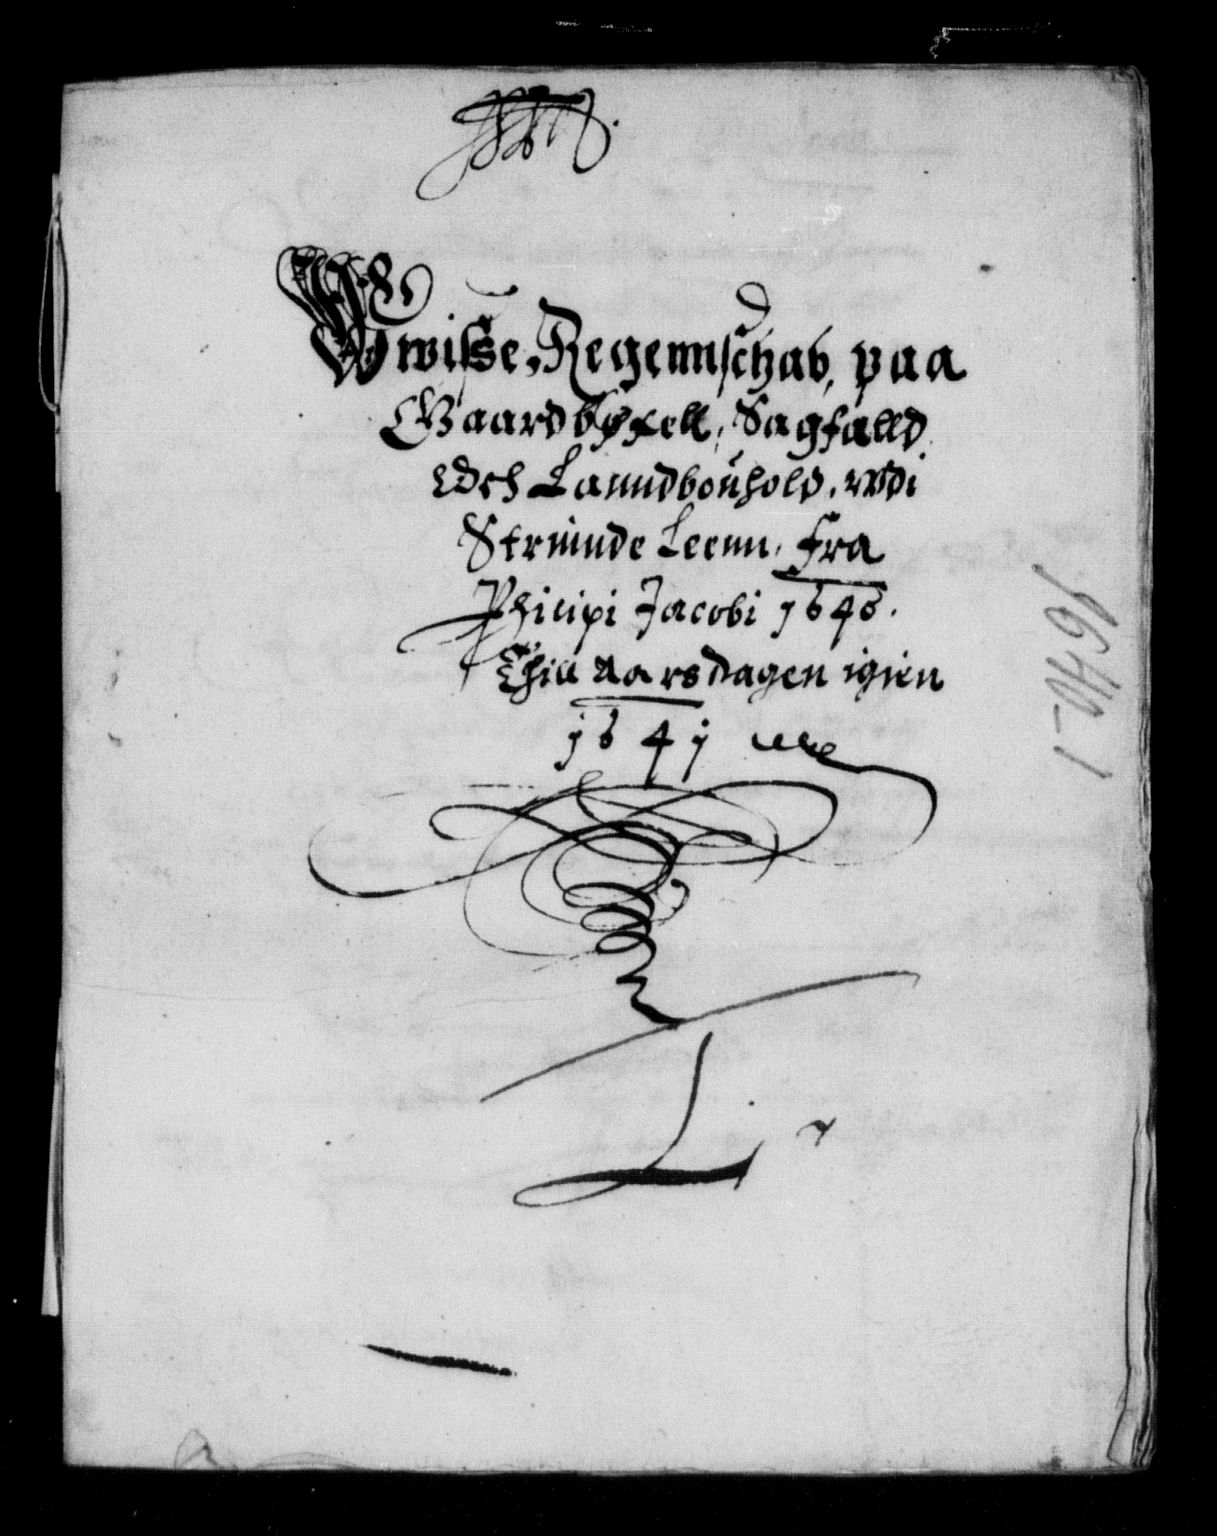 Wwisse, Regennschab, paa
Gaardbøxell, Sagfalld
Och Lanndbouhold, wdi
Strinde Leenn, fra
Philipi Jacobi 1640.
Thill Aarsdagen igien
1641
L
1640-1